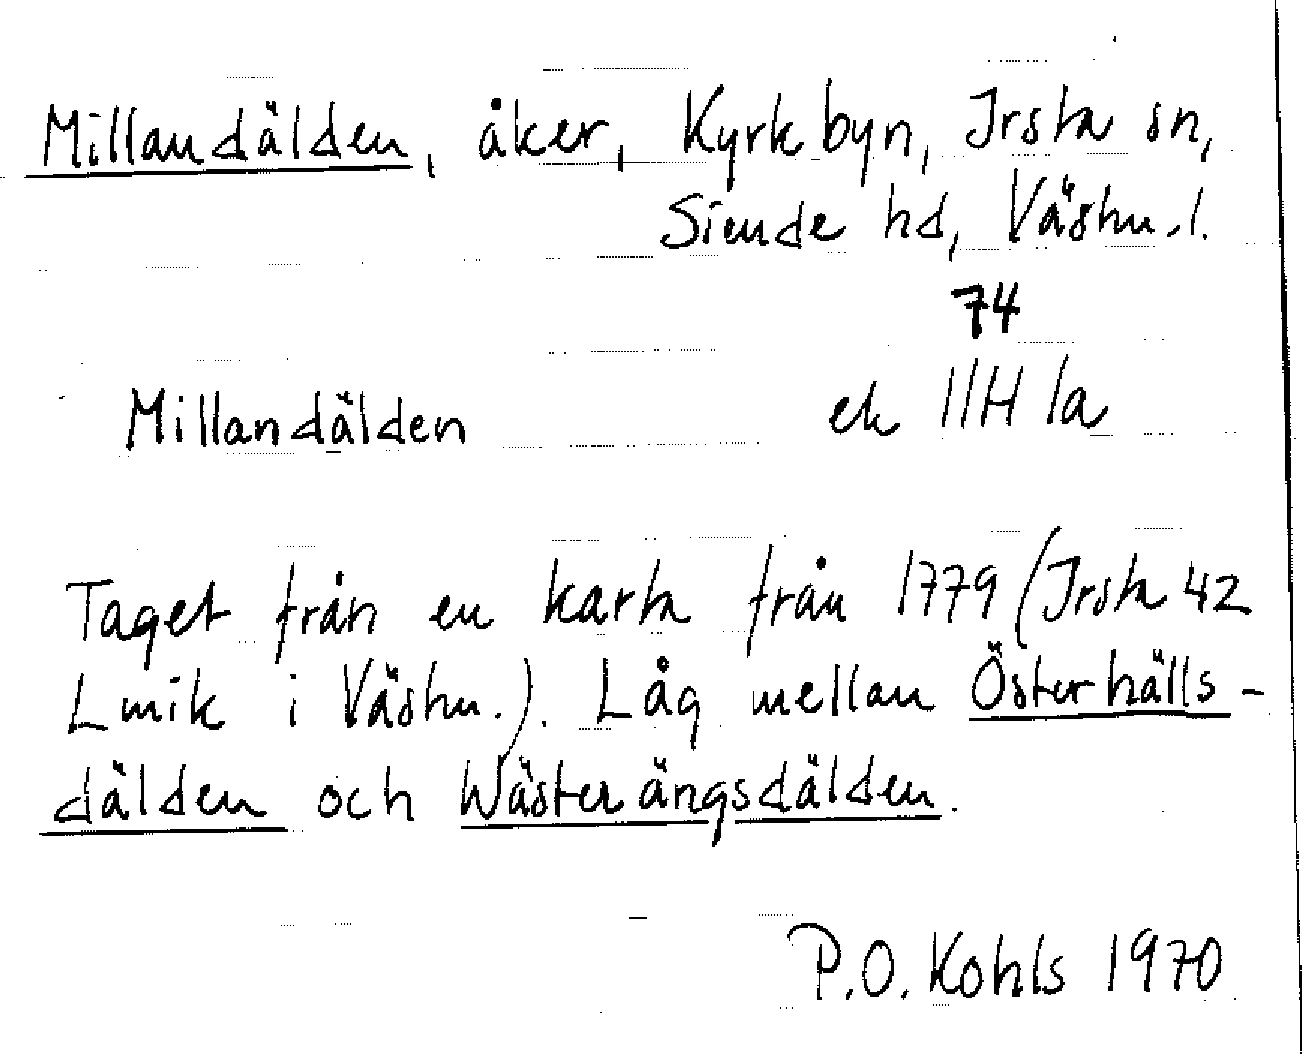 Millandälden, åker, Kyrkbyn, Irsta sn,
Siende hd, Västm.l.
74
Millandälden ek 11H 1a
Taget från en karta från 1779 (Irsta 42
Lmik i Västm.). Låg mellan Österhälls-
dälden och Wästerängsdälden.
P.O. Kohls 1970